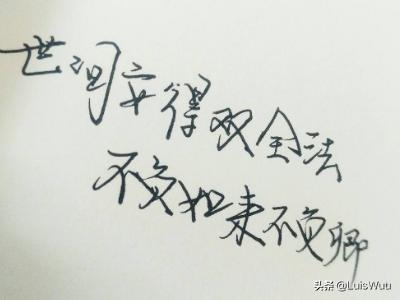 世间安得双全法
不负如来不负卿
头条 @LuisWuu